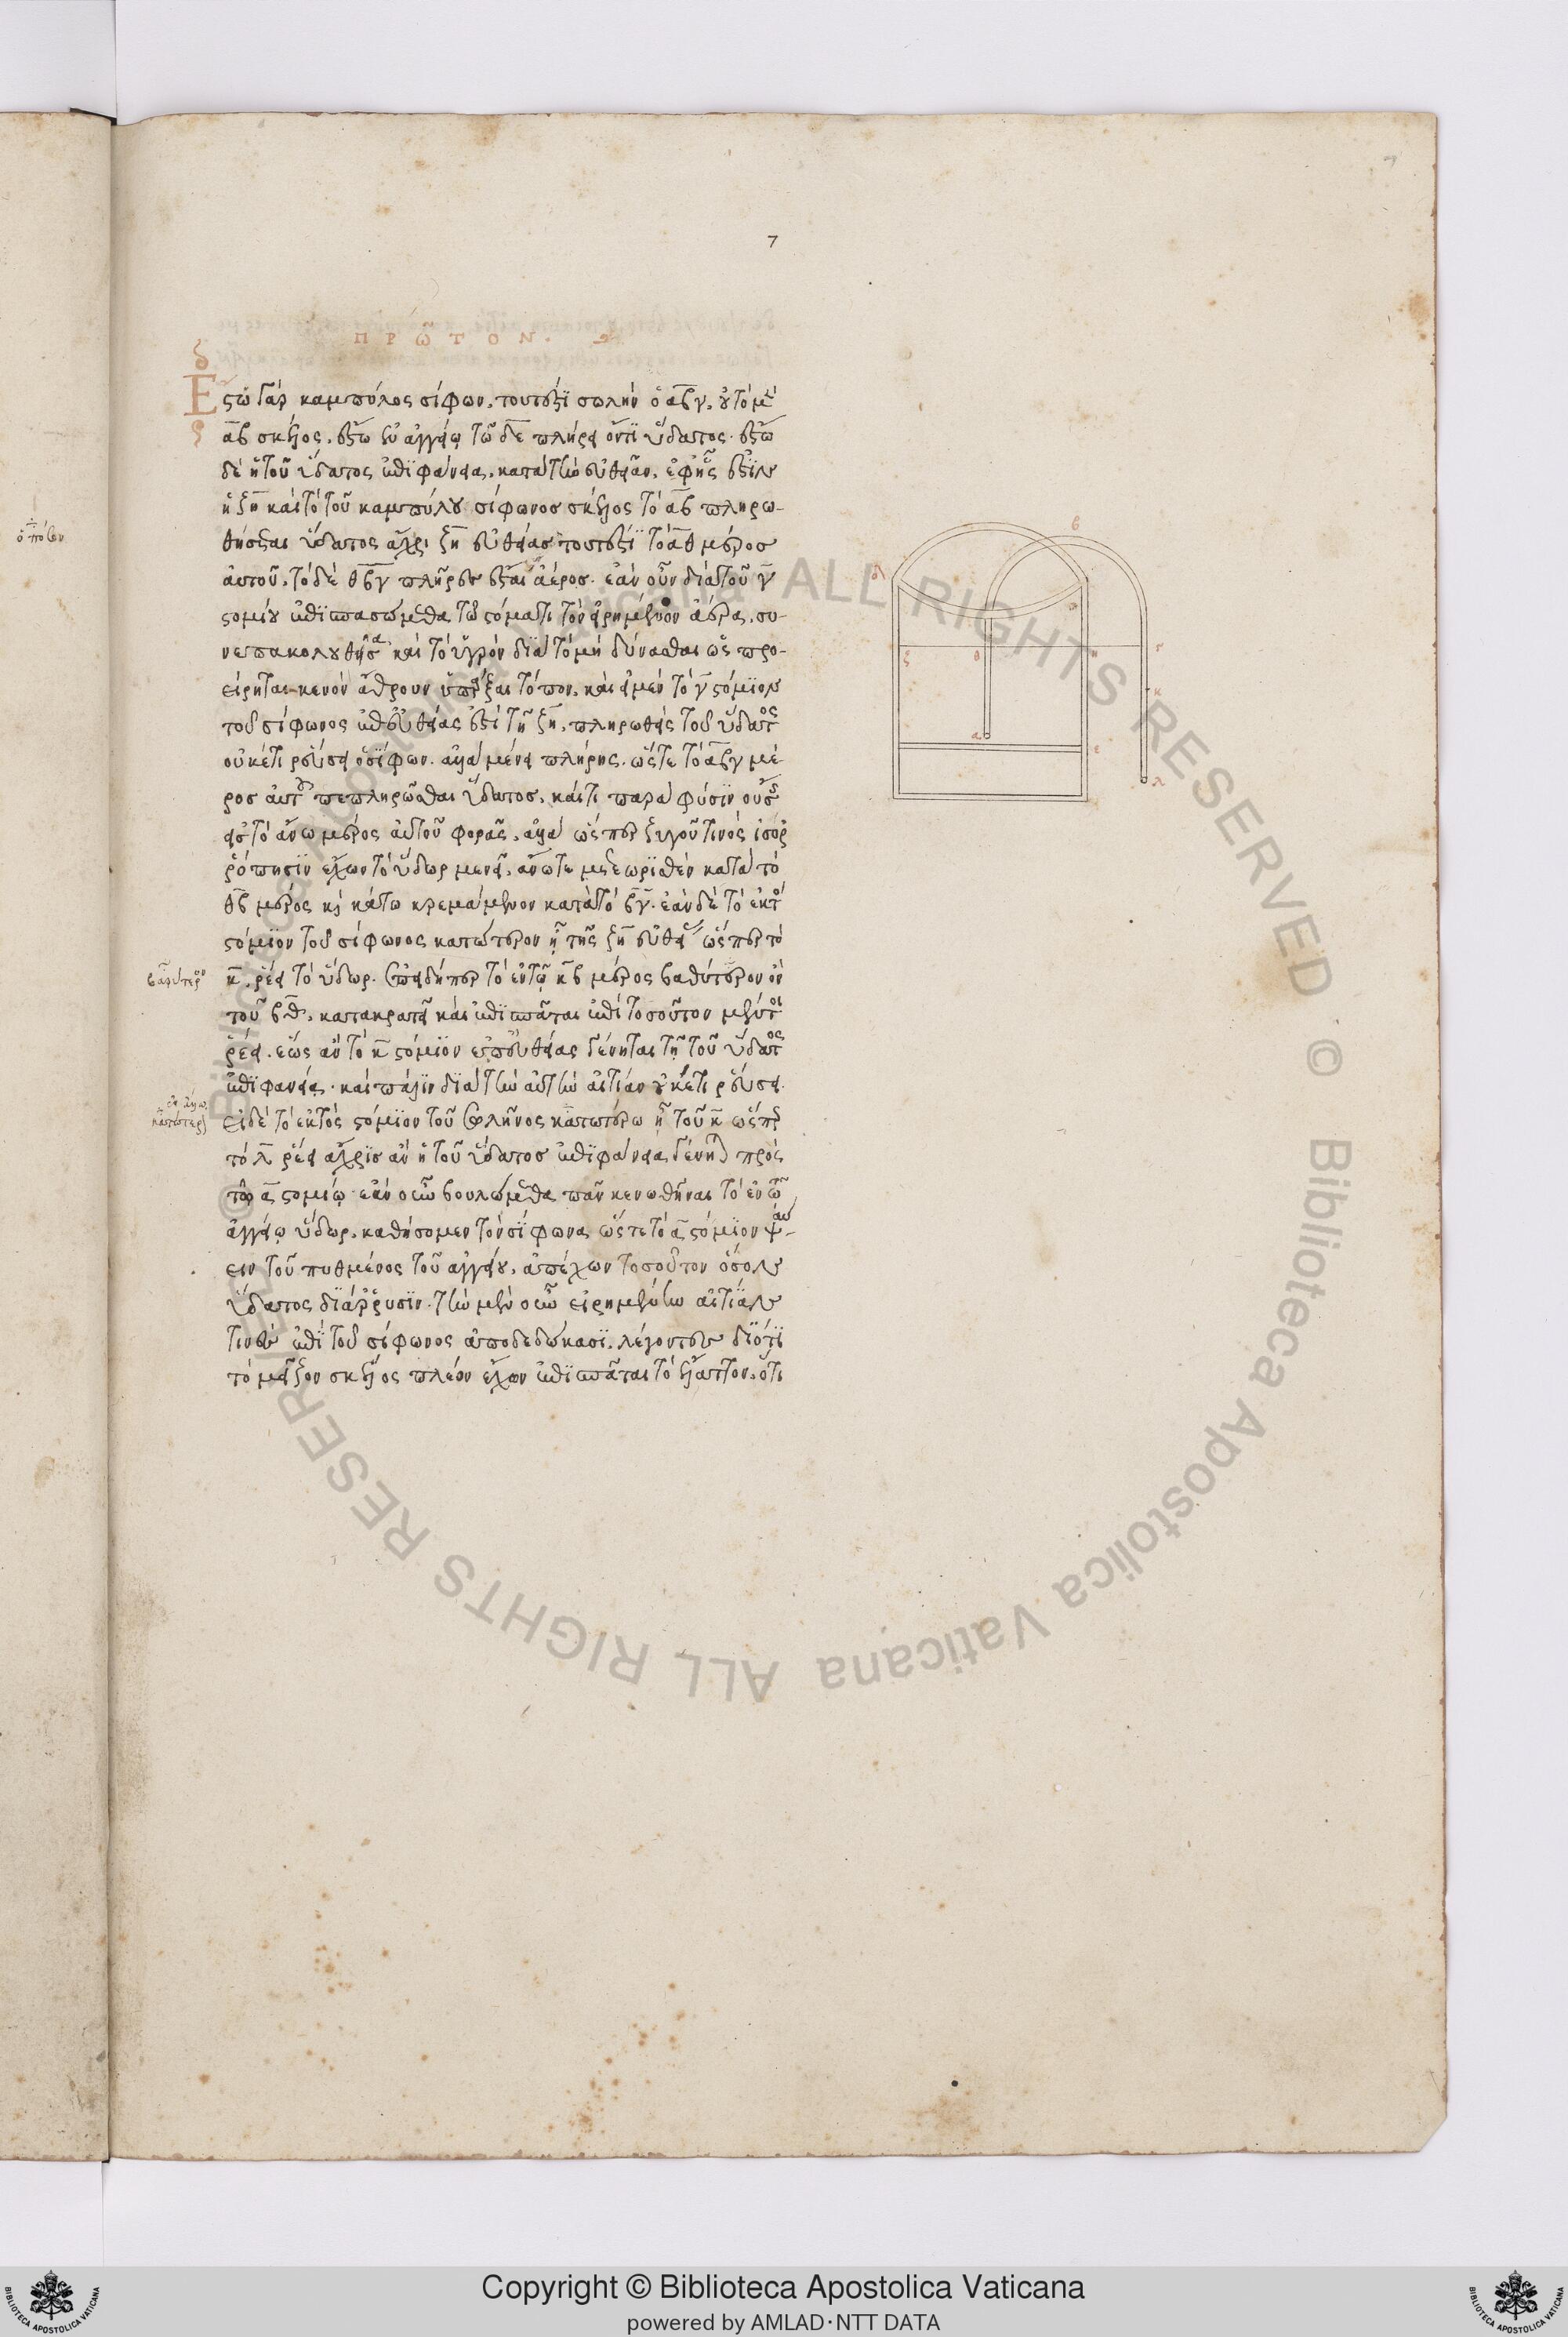 7
ΠΡΩ͂ΤΟΝ.
Ἔστω γὰρ καμπύλος σίφων, τουτέστι σωλὴν ὁ αβγ, οὗ τὸ μὲν
αβ σκέλος, ἔστω ἐν ἀγγείῳ τῷ δε πλήρει ὄντι ὕδατος. ἔστω
δὲ ἡ τοῦ ὕδατος ἐπιφάνεια, κατὰ τὴν εὐθεῖαν, ἐφ' ἧς ἐστιν
ἡ ζη καὶ τὸ τοῦ καμπύλου σίφωνος σκέλος τὸ αβ πληρω-
θήσεται ὕδατος ἄχρι ζη εὐθείας τουτέστι τὸ αθ μέρος
αὐτοῦ, τὸ δὲ θβγ πλῆρες ἔσται ἀέρος. ἐὰν οὖν διὰ τοῦ γ
στομίου ἐπισπασώμεθα τῷ στόματι τὸν εἰρημένον ἀέρα, συ-
νεπακολουθήσει καὶ τὸ ὑγρὸν διὰ τὸ μὴ δύνασθαι ὡς προ-
είρηται κενὸν ἄθρουν ὑπάρξαι τόπον, καὶ εἰ μὲν τὸ γ στόμιον
τοῦ σίφωνος ἐπ' εὐθείας ἐστὶ τῇ ζη, πληρωθεὶς τοῦ ὕδατος
οὐκέτι ρεύσει ὁ σίφων, ἀλλὰ μένει πλήρης, ὥστε τὸ αβγ μέ-
ρος αὐτοῦ πεπληρῶσθαι ὕδατος, καίτι παρὰ φύσιν οὔσης
εἰς τὸ ἄνω μέρος αὐτοῦ φορᾶς, ἀλλὰ ὥσπερ ζυγοῦ τινὸς ἰσορ
ρόπησιν ἔχων τὸ ὕδωρ μενεῖ, ἄνω τε μετεωρισθὲν κατὰ τὸ
θβ μέρος κὶ κάτω κρεμάμενον κατὰ τὸ βγ. ἐὰν δὲ τὸ ἐκτὸς
στόμιον τοῦ σίφωνος κατώτερον ᾖ τῆς ζη εὐθείας ὥσπερ τὸ
κ, ρέει τὸ ὕδωρ. ἐπειδήπερ τὸ ἐν τῷ κβ μέρος βαθύτερον ὂν
τοῦ βθ, κατακρατεῖ καὶ ἐπισπᾶται ἐπὶ τοσοῦτον μέντοι
ρέει, ἕως ἂν τὸ κ στόμιον ἐπ' εὐθείας γένηται τῇ τοῦ ὕδατος
ἐπιφανείᾳ. καὶ πάλιν διὰ τὴν αὐτὴν αἰτίαν οὐκέτι ρεύσει.
εἰ δὲ τὸ ἐκτὸς στόμιον τοῦ σωλῆνος κατωτέρω ᾖ τοῦ κ ὥσπερ
τὸ λ ρέει ἄχρις ἂν ἡ τοῦ ὕδατος ἐπιφάνεια γένηται πρὸς
τῷ α στομίῳ ἐὰν οὖν βουλώμεθα πᾶν κενωθῆναι τὸ ἐν τῷ
ἀγγείῳ ὕδωρ, καθήσομεν τὸν σίφωνα ὥστε τὸ α στόμιον ψαύ-
ειν τοῦ πυθμένος τοῦ ἀγγείου, ἀπέχων τοσοῦτον ὅσον
ὕδατος διάρρυσιν. τὴν μὲν οὖν εἰρημένην αἰτίαν
τινὲς ἐπὶ τοῦ σίφωνος ἀποδεδώκασι, λέγοντες διότι
τὸ μεῖζον σκέλος πλέον ἔχων ἐπισπᾶται τὸ ἔλαττον, ὅτι
βαθύτερον
ἐν ἄλλῳ
κατώτερον
β
δ
ζ
θ
η
γ
κ
α
ε
λ
Copyright © Biblioteca Apostolica Vaticana
powered by AMLAD·NTT DATA
BIBLIOTECA APOSTOLICA VATICANA
BIBLIOTECA APOSTOLICA VATICANA
Biblioteca Apostolica Vaticana ALL RIGHTS RESERVED ©
Biblioteca Apostolica Vaticana ALL RIGHTS RESERVED ©